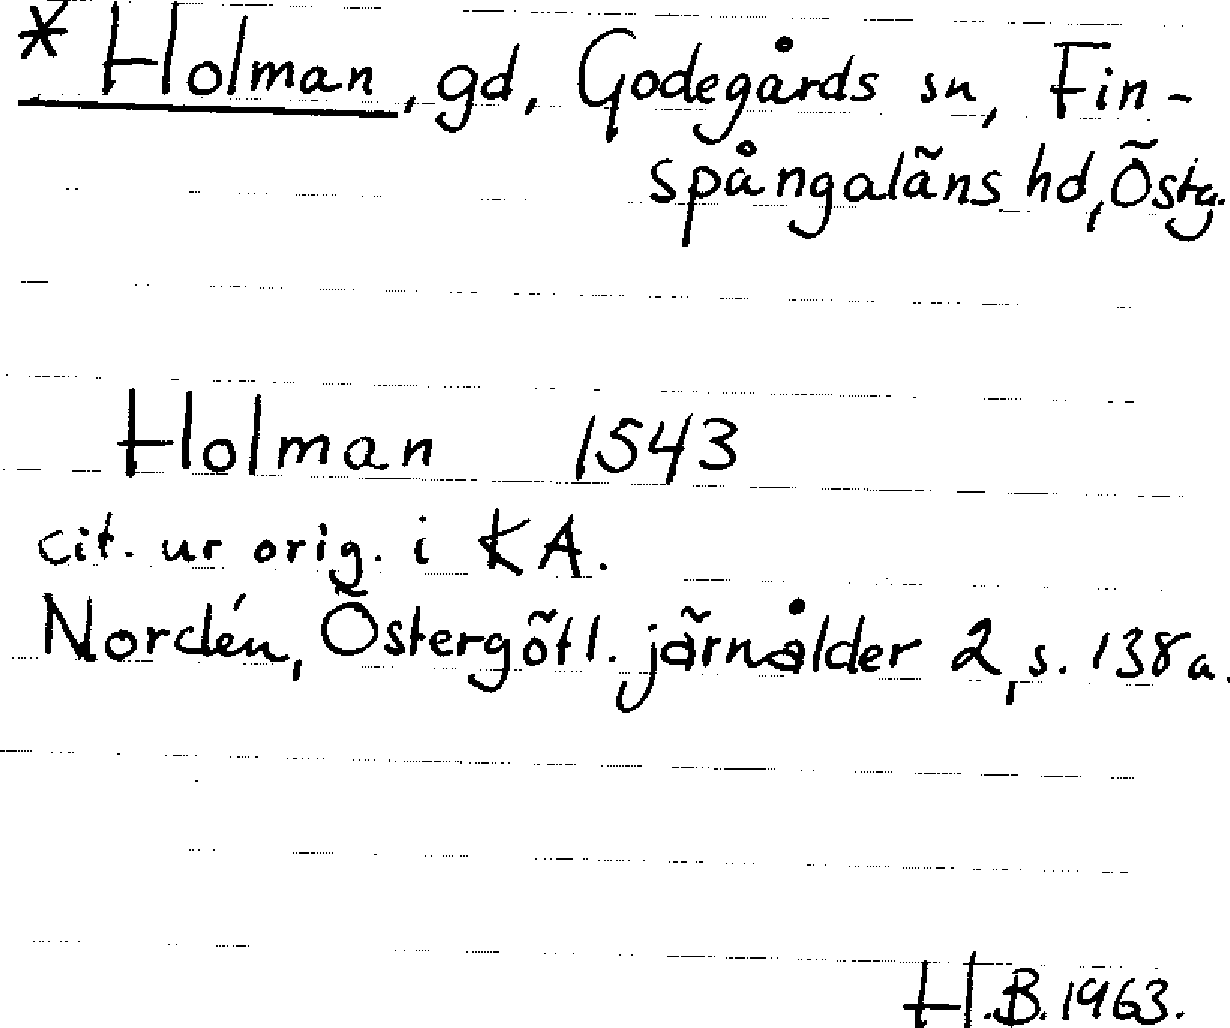 * Holman, gd, Godegårds sn, Fin-
spångaläns hd, Östg.
Holman 1543
cit. ur orig. i KA.
Nordén, Östergötl. järnålder 2, s. 138a.
H.B. 1963.